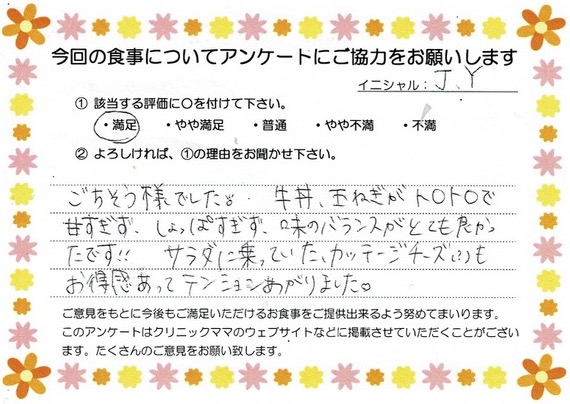 今回の食事についてアンケートにご協力をお願いします
イニシャル：J.Y
① 該当する評価に○を付けて下さい。
・満足 ・やや満足 ・普通 ・やや不満 ・不満
② よろしければ、①の理由をお聞かせ下さい。
ごちそう様でした。牛丼、玉ねぎがトロトロで
甘すぎず、しょっぱすぎず、味のバランスがとても良かっ
たです!! サラダに乗っていたカッテージチーズも
お得感あってテンションあがりました。
ご意見をもとに今後もご満足いただけるお食事をご提供出来るよう努めてまいります。
このアンケートはクリニックママのウェブサイトなどに掲載させていただくことがござい
ます。たくさんのご意見をお願い致します。